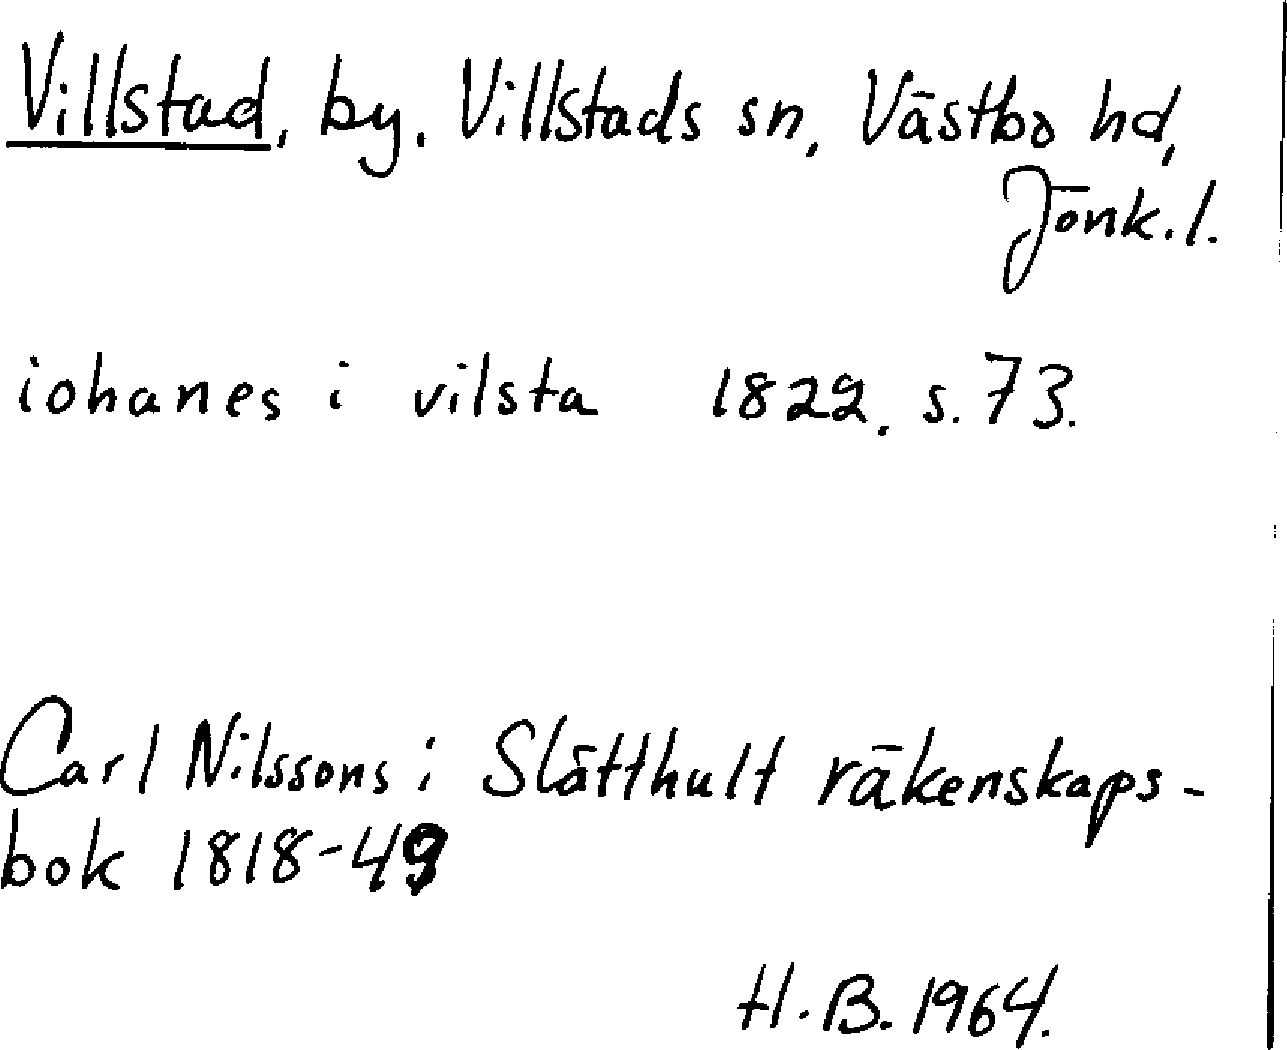 Villstad, by. Villstads sn, Västbo hd,
Jönk. l.
iohanes i vilsta 1822. s. 73.
Carl Nilssons i Slätthult räkenskaps-
bok 1818-49
H. B. 1964.